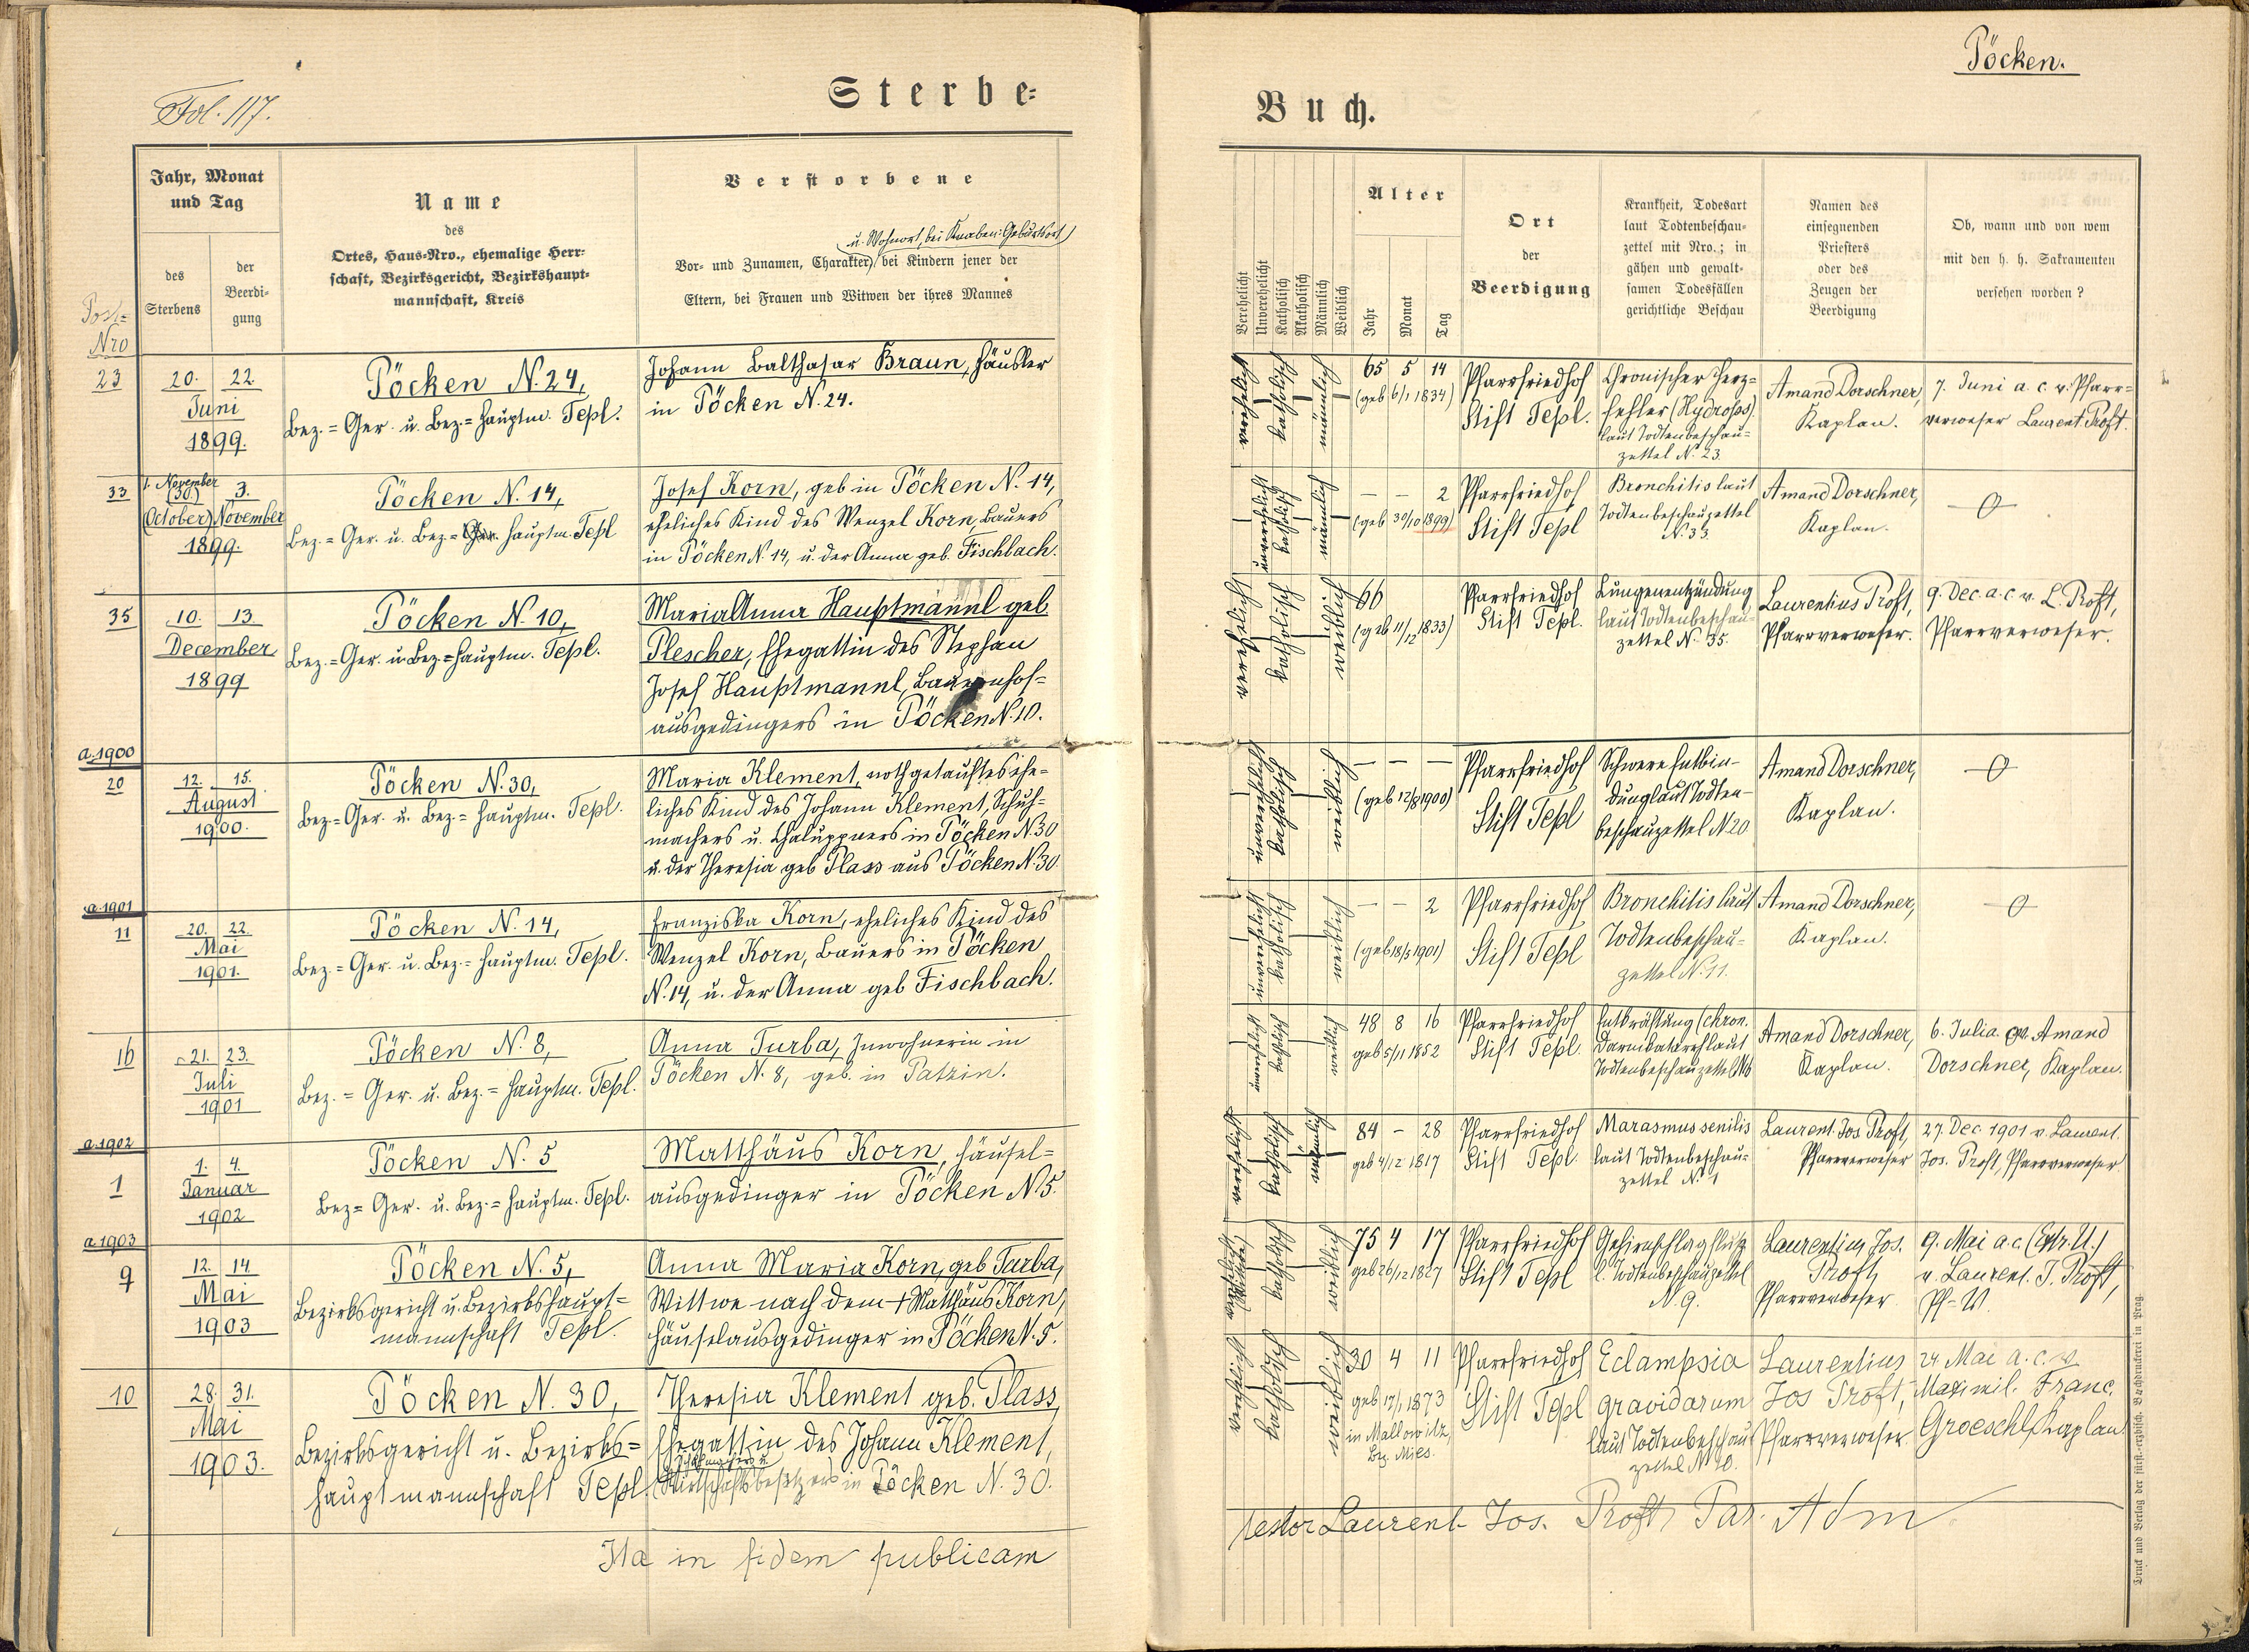 Pöcken.
Fol. 117.
Sterbe-
Buch.
Jahr, Monat
und Tag
des
Sterbens
der
Beerdi-
gung
Name
des
Ortes, Haus-Nro., ehemalige Herr-
schaft, Bezirksgericht, Bezirkshaupt-
mannschaft, Kreis
Verstorbene
u. Wohnort, bei Knaben: Geburtsort
Vor- und Zunamen, Charakter, bei Kindern jener der
Eltern, bei Frauen und Witwen der ihres Mannes
Verehelicht
Unverehelicht
Katholisch
Akatholisch
Männlich
Weiblich
Alter
Jahr
Monat
Tag
Ort
der
Beerdigung
Krankheit, Todesart
laut Todtenbeschau-
zettel mit Nro.; in
gähen und gewalt-
samen Todesfällen
gerichtliche Beschau
Namen des
einsegnenden
Priesters
oder des
Zeugen der
Beerdigung
Ob, wann und von wem
mit den h. h. Sakramenten
versehen worden?
Post-
Nro
23
20. 22.
Juni
1899.
Pöcken N. 24,
Bez.=Ger. u. Bez.=Hauptm. Tepl.
Johann Balthasar Braun, Häusler
in Pöcken N. 24.
verehelicht
katholisch
männlich
65 5 14
(geb 6/1 1834)
Pfarrfriedhof
Stift Tepl.
Chronischer Herz=
fehler (Hydrops)
laut Todtenbeschau=
zettel N. 23.
Amand Dorschner,
Kaplan.
7. Juni a. c. v. Pfarr=
verweser Laurent. Proft.
33
1. November
(30.) 3.
(October) November
1899.
Pöcken N. 14,
Bez.=Ger. u. Bez.=Ger. Hauptm. Tepl
Josef Korn, geb in Pöcken N. 14,
eheliches Kind des Wenzel Korn, Bauers
in Pöcken N. 14, u. der Anna geb. Fischbach.
unverehelicht
katholisch
männlich
– – 2
(geb 30/10 1899)
Pfarrfriedhof
Stift Tepl
Bronchitis laut
Todtenbeschauzettel
N. 33.
Amand Dorschner,
Kaplan.
35
10. 13.
December
1899
Pöcken N. 10,
Bez.=Ger. u. Bez.=Hauptm. Tepl.
Maria Anna Hauptmannl geb.
Plescher, Ehegattin des Stephan
Josef Hauptmannl, Bauernhof=
ausgedingers in Pöcken N. 10.
verehelicht
katholisch
weiblich
66
(geb 11/12 1833)
Pfarrfriedhof
Stift Tepl.
Lungenentzündung
laut Todtenbeschau=
zettel N. 35.
Laurentius Proft,
Pfarrverweser.
9. Dec. a. c. v. L. Proft,
Pfarrverweser.
a. 1900
20
12. 15.
August
1900.
Pöcken N. 30,
Bez.=Ger. u. Bez.=Hauptm. Tepl.
Maria Klement, nothgetauftes ehe=
liches Kind des Johann Klement, Schuh=
machers u. Chaluppners in Pöcken N. 30
u. der Theresia geb Plass aus Pöcken N. 30.
unverehelicht
katholisch
weiblich
– – –
(geb 12/8 1900)
Pfarrfriedhof
Stift Tepl
Schwere Entbin-
dung laut Todten-
beschauzettel N 20
Amand Dorschner,
Kaplan.
a. 1901
11
20. 22.
Mai
1901.
Pöcken N. 14,
Bez.=Ger. u. Bez.=Hauptm. Tepl.
Franziska Korn, eheliches Kind des
Wenzel Korn, Bauers in Pöcken
N. 14, u. der Anna geb Fischbach.
unverehelicht
katholisch
weiblich
– – 2
(geb 18/5 1901)
Pfarrfriedhof
Stift Tepl
Bronchitis laut
Todtenbeschau-
zettel N. 11.
Amand Dorschner,
Kaplan.
16
21. 23.
Juli
1901
Pöcken N. 8,
Bez.=Ger. u. Bez.=Hauptm. Tepl.
Anna Turba, Inwohnerin in
Pöcken N. 8, geb. in Patzin.
unverehelicht
katholisch
weiblich
48 8 16
geb 5/11 1852
Pfarrfriedhof
Stift Tepl.
Entkräftung (chron.
Darmkatarrh laut
Todtenbeschauzettel N 16
Amand Dorschner,
Kaplan.
6. Juli a. c. v. Amand
Dorschner, Kaplan.
a. 1902
1
1. 4.
Januar
1902
Pöcken N. 5
Bez=Ger. u. Bez.=Hauptm. Tepl.
Matthäus Korn, Häusel=
ausgedinger in Pöcken N 5.
verehelicht
katholisch
männlich
84 – 28
geb 4/12 1817
Pfarrfriedhof
Stift Tepl.
Marasmus senilis
laut Todtenbeschau=
zettel N. 1
Laurent. Jos Proft,
Pfarrverweser
27. Dec. 1901 v. Laurent.
Jos. Proft, Pfarrverweser
a. 1903
9
12. 14.
Mai
1903
Pöcken N. 5,
Bezirksgericht u. Bezirkshaupt=
mannschaft Tepl.
Anna Maria Korn, geb Turba,
Wittwe nach dem † Matthäus Korn,
Häuselausgedinger in Pöcken N. 5.
verehelicht
(Wittwe)
katholisch
weiblich
75 4 17
geb 26/12 1827
Pfarrfriedhof
Stift Tepl
Gehirnschlagfluß
l. Todtenbeschauzettel
N. 9.
Laurentius Jos.
Proft,
Pfarrverweser
9. Mai a. c. (Extr. U.)
v. Laurent. J. Proft,
Pf=V.
10
28. 31.
Mai
1903.
Pöcken N. 30,
Bezirksgericht u. Bezirks=
hauptmannschaft Tepl.
Theresia Klement geb. Plass,
Ehegattin des Johann Klement,
Schuhmachers u.
Wirtschaftsbesitzers in Pöcken N. 30.
verehelicht
katholisch
weiblich
30 4 11
geb 17/1 1873
in Mallowitz,
Bez. Mies.
Pfarrfriedhof
Stift Tepl
Eclampsia
gravidarum
laut Todtenbeschau
zettel N 10.
Laurentius
Jos Proft,
Pfarrverweser.
24 Mai a. c. v.
Maximil. Franc.
Groeschl, Kaplan
Ita in fidem publicam
testor Laurent. Jos. Proft, Par. Adm
Druck und Verlag der fürst.-erzbisch. Buchdruckerei in Prag.